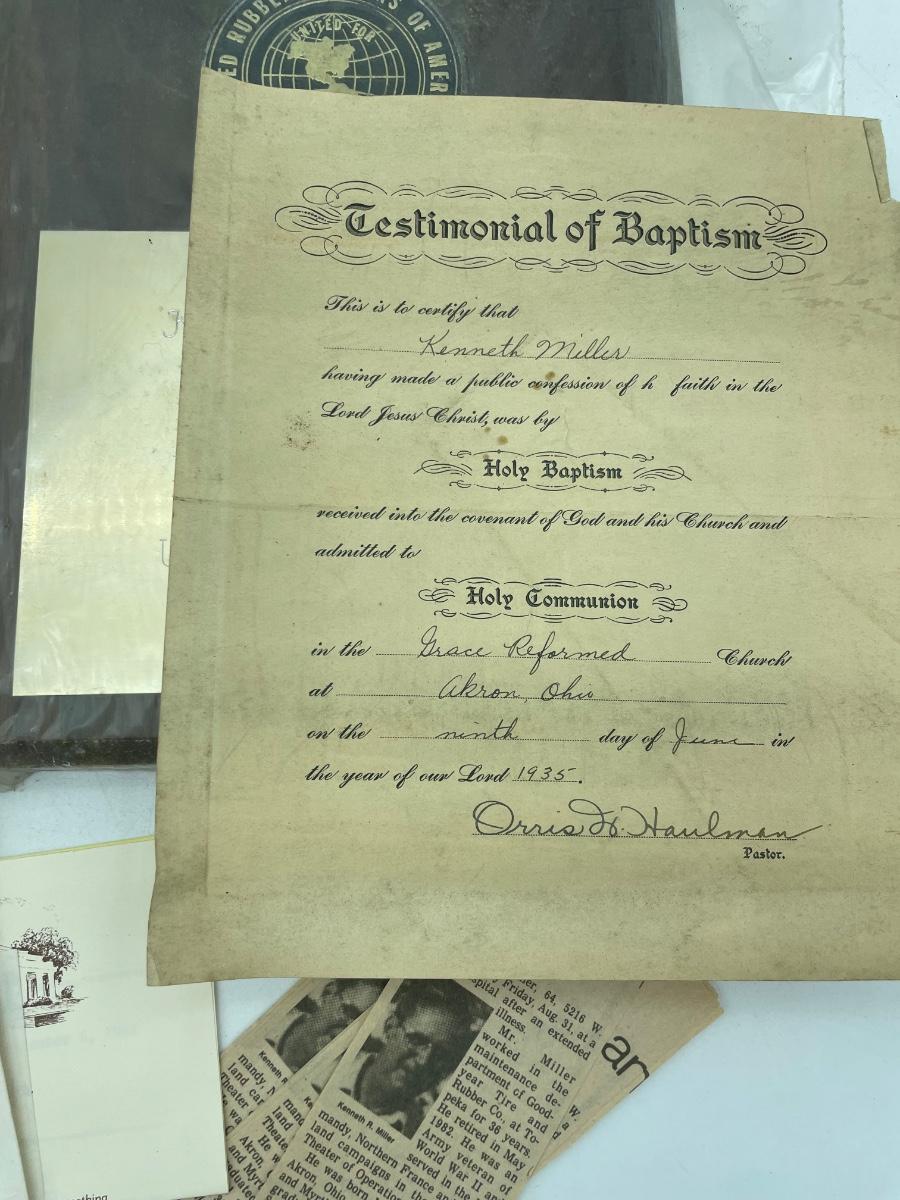 ED RUBBER
S OF AMER
UNITED FOR
Testimonial of Baptism
This is to certify that
Kenneth Miller
having made a public confession of h faith in the
Lord Jesus Christ, was by
Holy Baptism
received into the covenant of God and his Church and
admitted to
Holy Communion
in the Grace Reformed Church
at Akron, Ohio
on the ninth day of June in
the year of our Lord 1935.
Orris W. Haulman
Pastor.
J
U
64, 5216 W.
Friday, Aug. 31, at a
spital after an extended
illness.
Mr. Miller
worked in the
maintenance de-
partment of Good-
year Tire and
Rubber Co. at To-
peka for 36 years.
He retired in May
1982. He was an
Army veteran of
World War II and
served in the
Kenneth R. Miller
mandy, Northern France and
land campaigns in the
Theater of Operation
He was born
Akron, Ohio
and Myrt
grad
an
Kenneth R
mandy, N
land car
Theater
He wa
Akron,
and Myrt